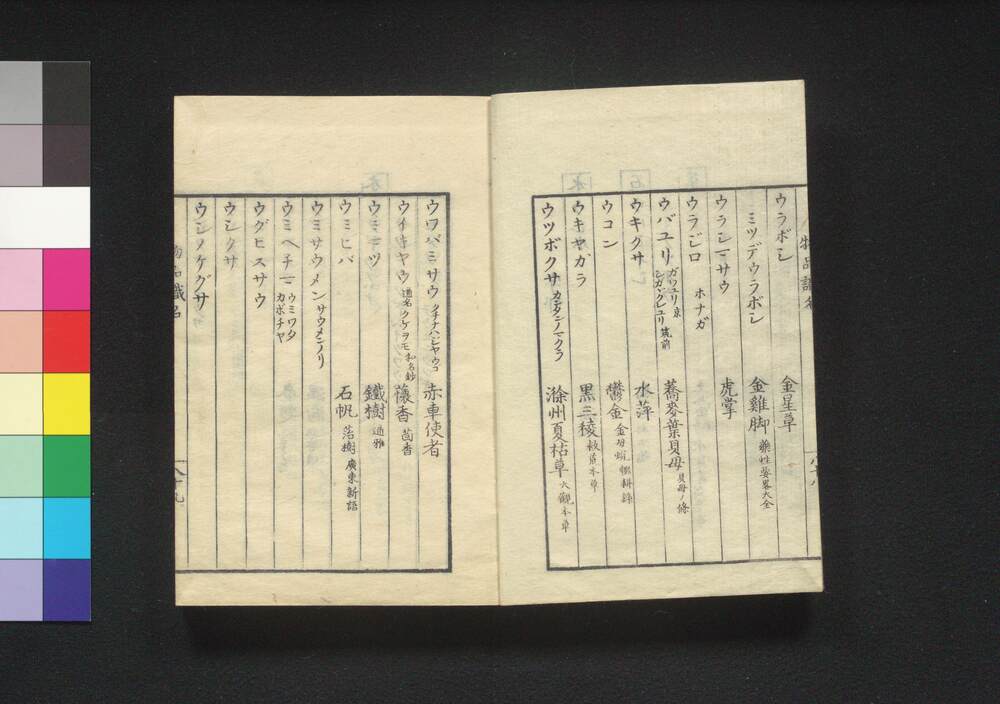 ウラボシ 金星草
ミツデウラボシ 金雞脚 藥性要畧大全
ウラシマサウ 虎掌
ウラジロ ホナガ
ウバユリ ガワユリ京 シカカクレユリ筑前 蕎麥葉貝母 貝母ノ條
ウキクサ 水萍
ウコン 鬱金
ウキヤガラ 黒三稜 救荒本草
ウツボクサ 滁州夏枯草 大觀本草
ウワバミサウ クチナハジヤウゴ 赤車使者
ウイキヤウ 通名 クケヲモ 和名鈔 蘹香 茴香
ウミマツ 鐵樹 通雅
ウミヒバ 石帆 落樹 廣東新語
ウミサウメン サウメンノリ
ウミヘチマ ウミワタ カボチヤ
ウグヒスサウ
ウシクサ
ウシノケグサ
物品識名